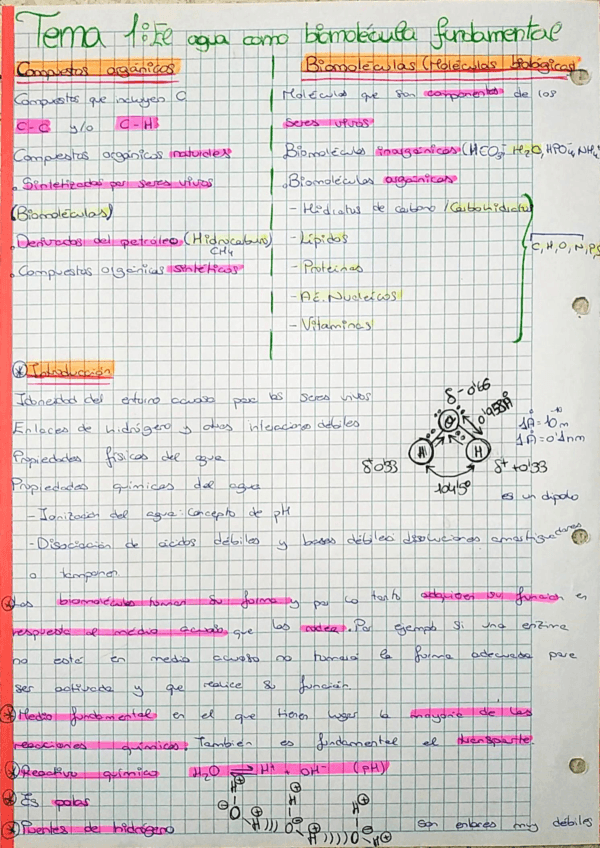 Tema 1: El agua como biomolécula fundamental
Compuestos orgánicos
Compuestos que incluyen C
C-C y/o C-H
Compuestos orgánicos naturales
• Sintetizados por seres vivos
(Biomoléculas)
• Derivados del petróleo (Hidrocarburo)
CH4
• Compuestos orgánicos sintéticos
Biomoléculas (Moléculas biológicas)
Moléculas que son componentes de los
seres vivos
Biomoléculas inorgánicas (HCO3-, H2O, HPO4, NH4
• Biomoléculas orgánicas
- Hidratos de carbono / Carbohidratos
- Lípidos
- Proteínas
- Ac. Nucleicos
- Vitaminas
C, H, O, N, P, S
* Introducción
Idoneidad del entorno acuoso para los seres vivos
Enlaces de hidrógeno y otras interacciones débiles
Propiedades físicas del agua
Propiedades químicas del agua
- Ionización del agua: Concepto de pH
- Disociación de ácidos débiles y bases débiles: disoluciones amortiguadoras
o tampones.
δ- 0'66
O
0'958Å
H H
δ+0'33
δ+ +0'33
104'5º
1Å = 10^-10 m
1Å = 0'1nm
es un dipolo
* Las biomoléculas toman su forma y por lo tanto adquieren su función en
respuesta al medio acuoso que las rodea. Por ejemplo si una enzima
no esté en medio acuoso no tomará la forma adecuada para
ser activada y que realice su función.
* Medio fundamental en el que tienen lugar la mayoría de las
reacciones químicas. También es fundamental el transporte.
* Reactivo químico H2O ⇌ H+ + OH- (pH)
* Es polar
* Puentes de hidrógeno
H ⊕ H ⊕ H ⊕
O - H))) O - H)))) O - H ⊕
⊖ ⊖ ⊖
son enlaces muy débiles